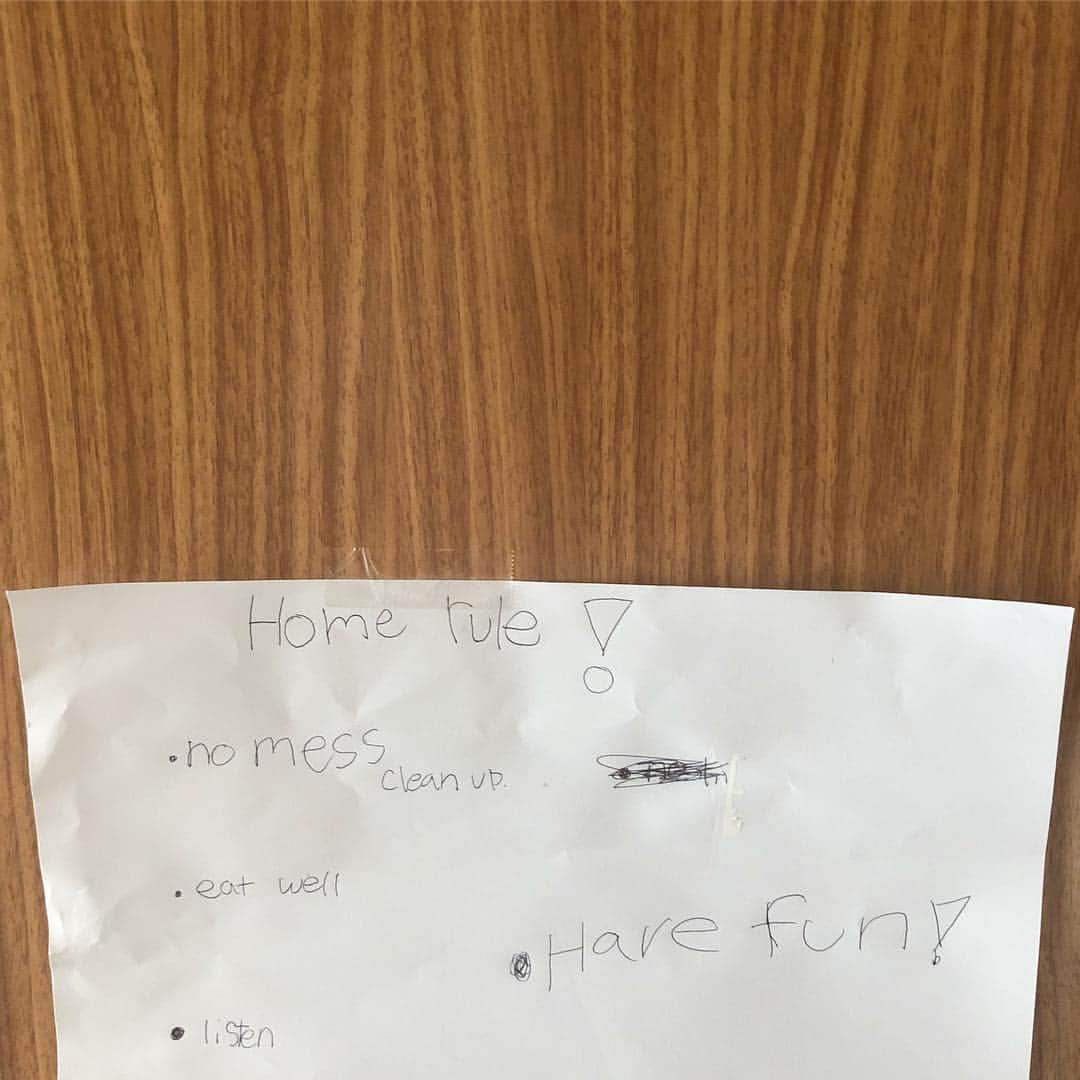 Home rule!
• no mess
clean up.
• eat well
• Have fun!
• listen